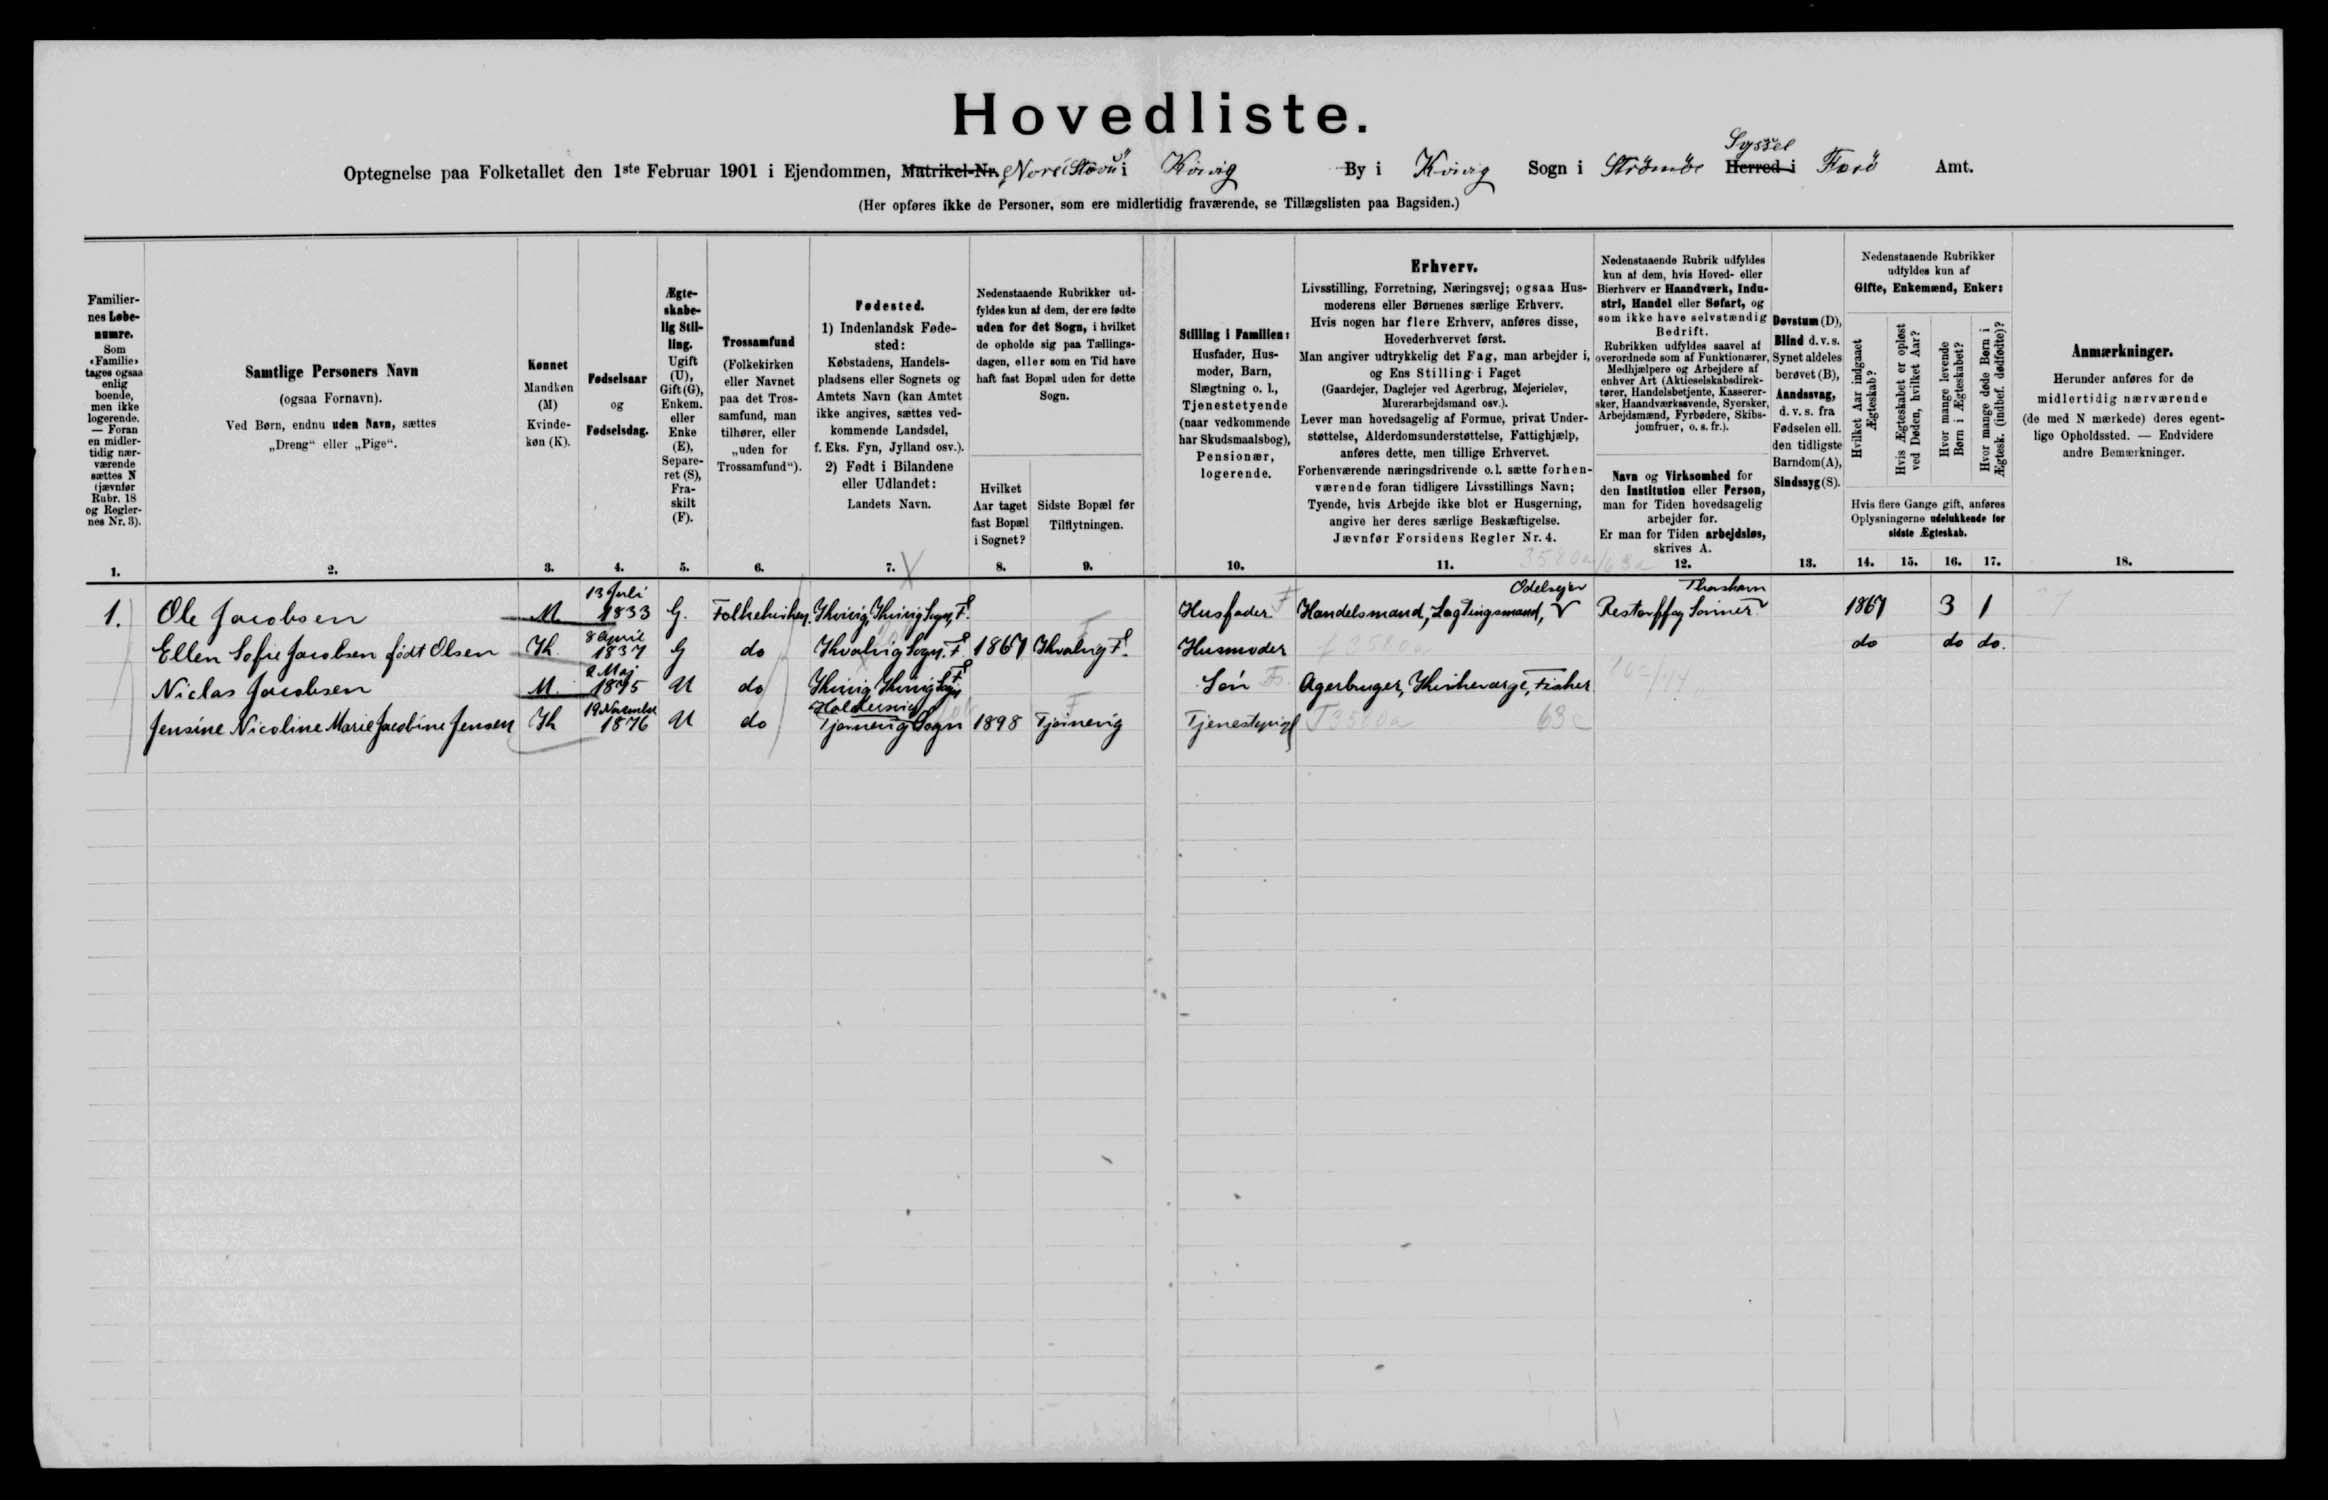 Hovedliste.
Syssel
Optegnelse paa Folketallet den 1ste Februar 1901 i Ejendommen, Matrikel-Nr. i Kvivig By i Kvivig Sogn i Strömöe Herred i Færö Amt.
(Her opføres ikke de Personer, som ere midlertidig fraværende, se Tillægslisten paa Bagsiden.)
Familiernes Løbenumre.
Som «Familie» tages ogsaa enlig boende, men ikke logerende. — Foran en midlertidig nærværende sættes N (jævnfør Rubr. 18 og Reglernes Nr. 3).
Samtlige Personers Navn
(ogsaa Fornavn).
Ved Børn, endnu uden Navn, sættes
„Dreng“ eller „Pige“.
Kønnet
Mandkøn
(M)
Kvindekøn (K).
Fødselsaar
og
Fødselsdag.
Ægteskabelig Stilling.
Ugift (U), Gift (G), Enkem. eller Enke (E), Separeret (S), Fraskilt (F).
Trossamfund
(Folkekirken eller Navnet paa det Trossamfund, man tilhører, eller „uden for Trossamfund“).
Fødested.
1) Indenlandsk Fødested:
Købstadens, Handelspladsens eller Sognets og Amtets Navn (kan Amtet ikke angives, sættes vedkommende Landsdel, f. Eks. Fyn, Jylland osv.).
2) Født i Bilandene eller Udlandet:
Landets Navn.
Nedenstaaende Rubrikker udfyldes kun af dem, der ere fødte uden for det Sogn, i hvilket de opholde sig paa Tællingsdagen, eller som en Tid have haft fast Bopæl uden for dette Sogn.
Hvilket Aar taget fast Bopæl i Sognet?
Sidste Bopæl før Tilflytningen.
Stilling i Familien:
Husfader, Husmoder, Barn, Slægtning o. l., Tjenestetyende (naar vedkommende har Skudsmaalsbog), Pensionær, logerende.
Erhverv.
Livsstilling, Forretning, Næringsvej; ogsaa Husmoderens eller Børnenes særlige Erhverv.
Hvis nogen har flere Erhverv, anføres disse, Hovederhvervet først.
Man angiver udtrykkelig det Fag, man arbejder i, og Ens Stilling i Faget
(Gaardejer, Daglejer ved Agerbrug, Mejerielev, Murerarbejdsmand osv.).
Lever man hovedsagelig af Formue, privat Understøttelse, Alderdomsunderstøttelse, Fattighjælp, anføres dette, men tillige Erhvervet.
Forhenværende næringsdrivende o. l. sætte forhenværende foran tidligere Livsstillings Navn;
Tyende, hvis Arbejde ikke blot er Husgerning, angive her deres særlige Beskæftigelse.
Jævnfør Forsidens Regler Nr. 4.
Nedenstaaende Rubrik udfyldes kun af dem, hvis Hoved- eller Bierhverv er Haandværk, Industri, Handel eller Søfart, og som ikke have selvstændig Bedrift.
Rubrikken udfyldes saavel af overordnede som af Funktionærer, Medhjælpere og Arbejdere af enhver Art (Aktieselskabsdirektører, Handelsbetjente, Kasserersker, Haandværkssvende, Syersker, Arbejdsmænd, Fyrbødere, Skibsjomfruer, o. s. fr.).
Navn og Virksomhed for den Institution eller Person, man for Tiden hovedsagelig arbejder for.
Er man for Tiden arbejdsløs, skrives A.
Døvstum (D),
Blind d. v. s. Synet aldeles berøvet (B),
Aandssvag, d. v. s. fra Fødselen ell. den tidligste Barndom (A),
Sindssyg (S).
Nedenstaaende Rubrikker udfyldes kun af
Gifte, Enkemænd, Enker:
Hvilket Aar indgaaet Ægteskab?
Hvis Ægteskabet er opløst ved Døden, hvilket Aar?
Hvor mange levende Børn i Ægteskabet?
Hvor mange døde Børn i Ægtesk. (indbef. dødfødte)?
Hvis flere Gange gift, anføres Oplysningerne udelukkende for sidste Ægteskab.
Anmærkninger.
Herunder anføres for de midlertidig nærværende (de med N mærkede) deres egentlige Opholdssted. — Endvidere andre Bemærkninger.
1. 2. 3. 4. 5. 6. 7. 8. 9. 10. 11. 12. 13. 14. 15. 16. 17. 18.
13 Juli Odelsejer Thorshavn
1. Ole Jacobsen M 1833 G. Folkekirken. Kvivig, Kvivig Sogn, F. Husfader Handelsmand, Lagtingsmand, Restorff og Sönner 1867 3 1
8 April
Ellen Sofie Jacobsen födt Olsen K. 1837 G do Kvalvig Sogn. F. 1867 Kvalvig F. Husmoder do do do.
2 Maj
Niclas Jacobsen M. 1875 U do Kvivig, Kvivig Sogn F Sön Agerbruger, Kirkeværge, Fisker
19 November Haldersvig
Jensine Nicoline Marie Jacobine Jensen K 1876 U do Tjörnevig Sogn 1898 Tjörnevig Tjenestepige 63c